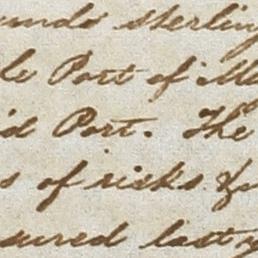 unds sterling
le Port of Ma
id Port. The
s of risks &
sured last